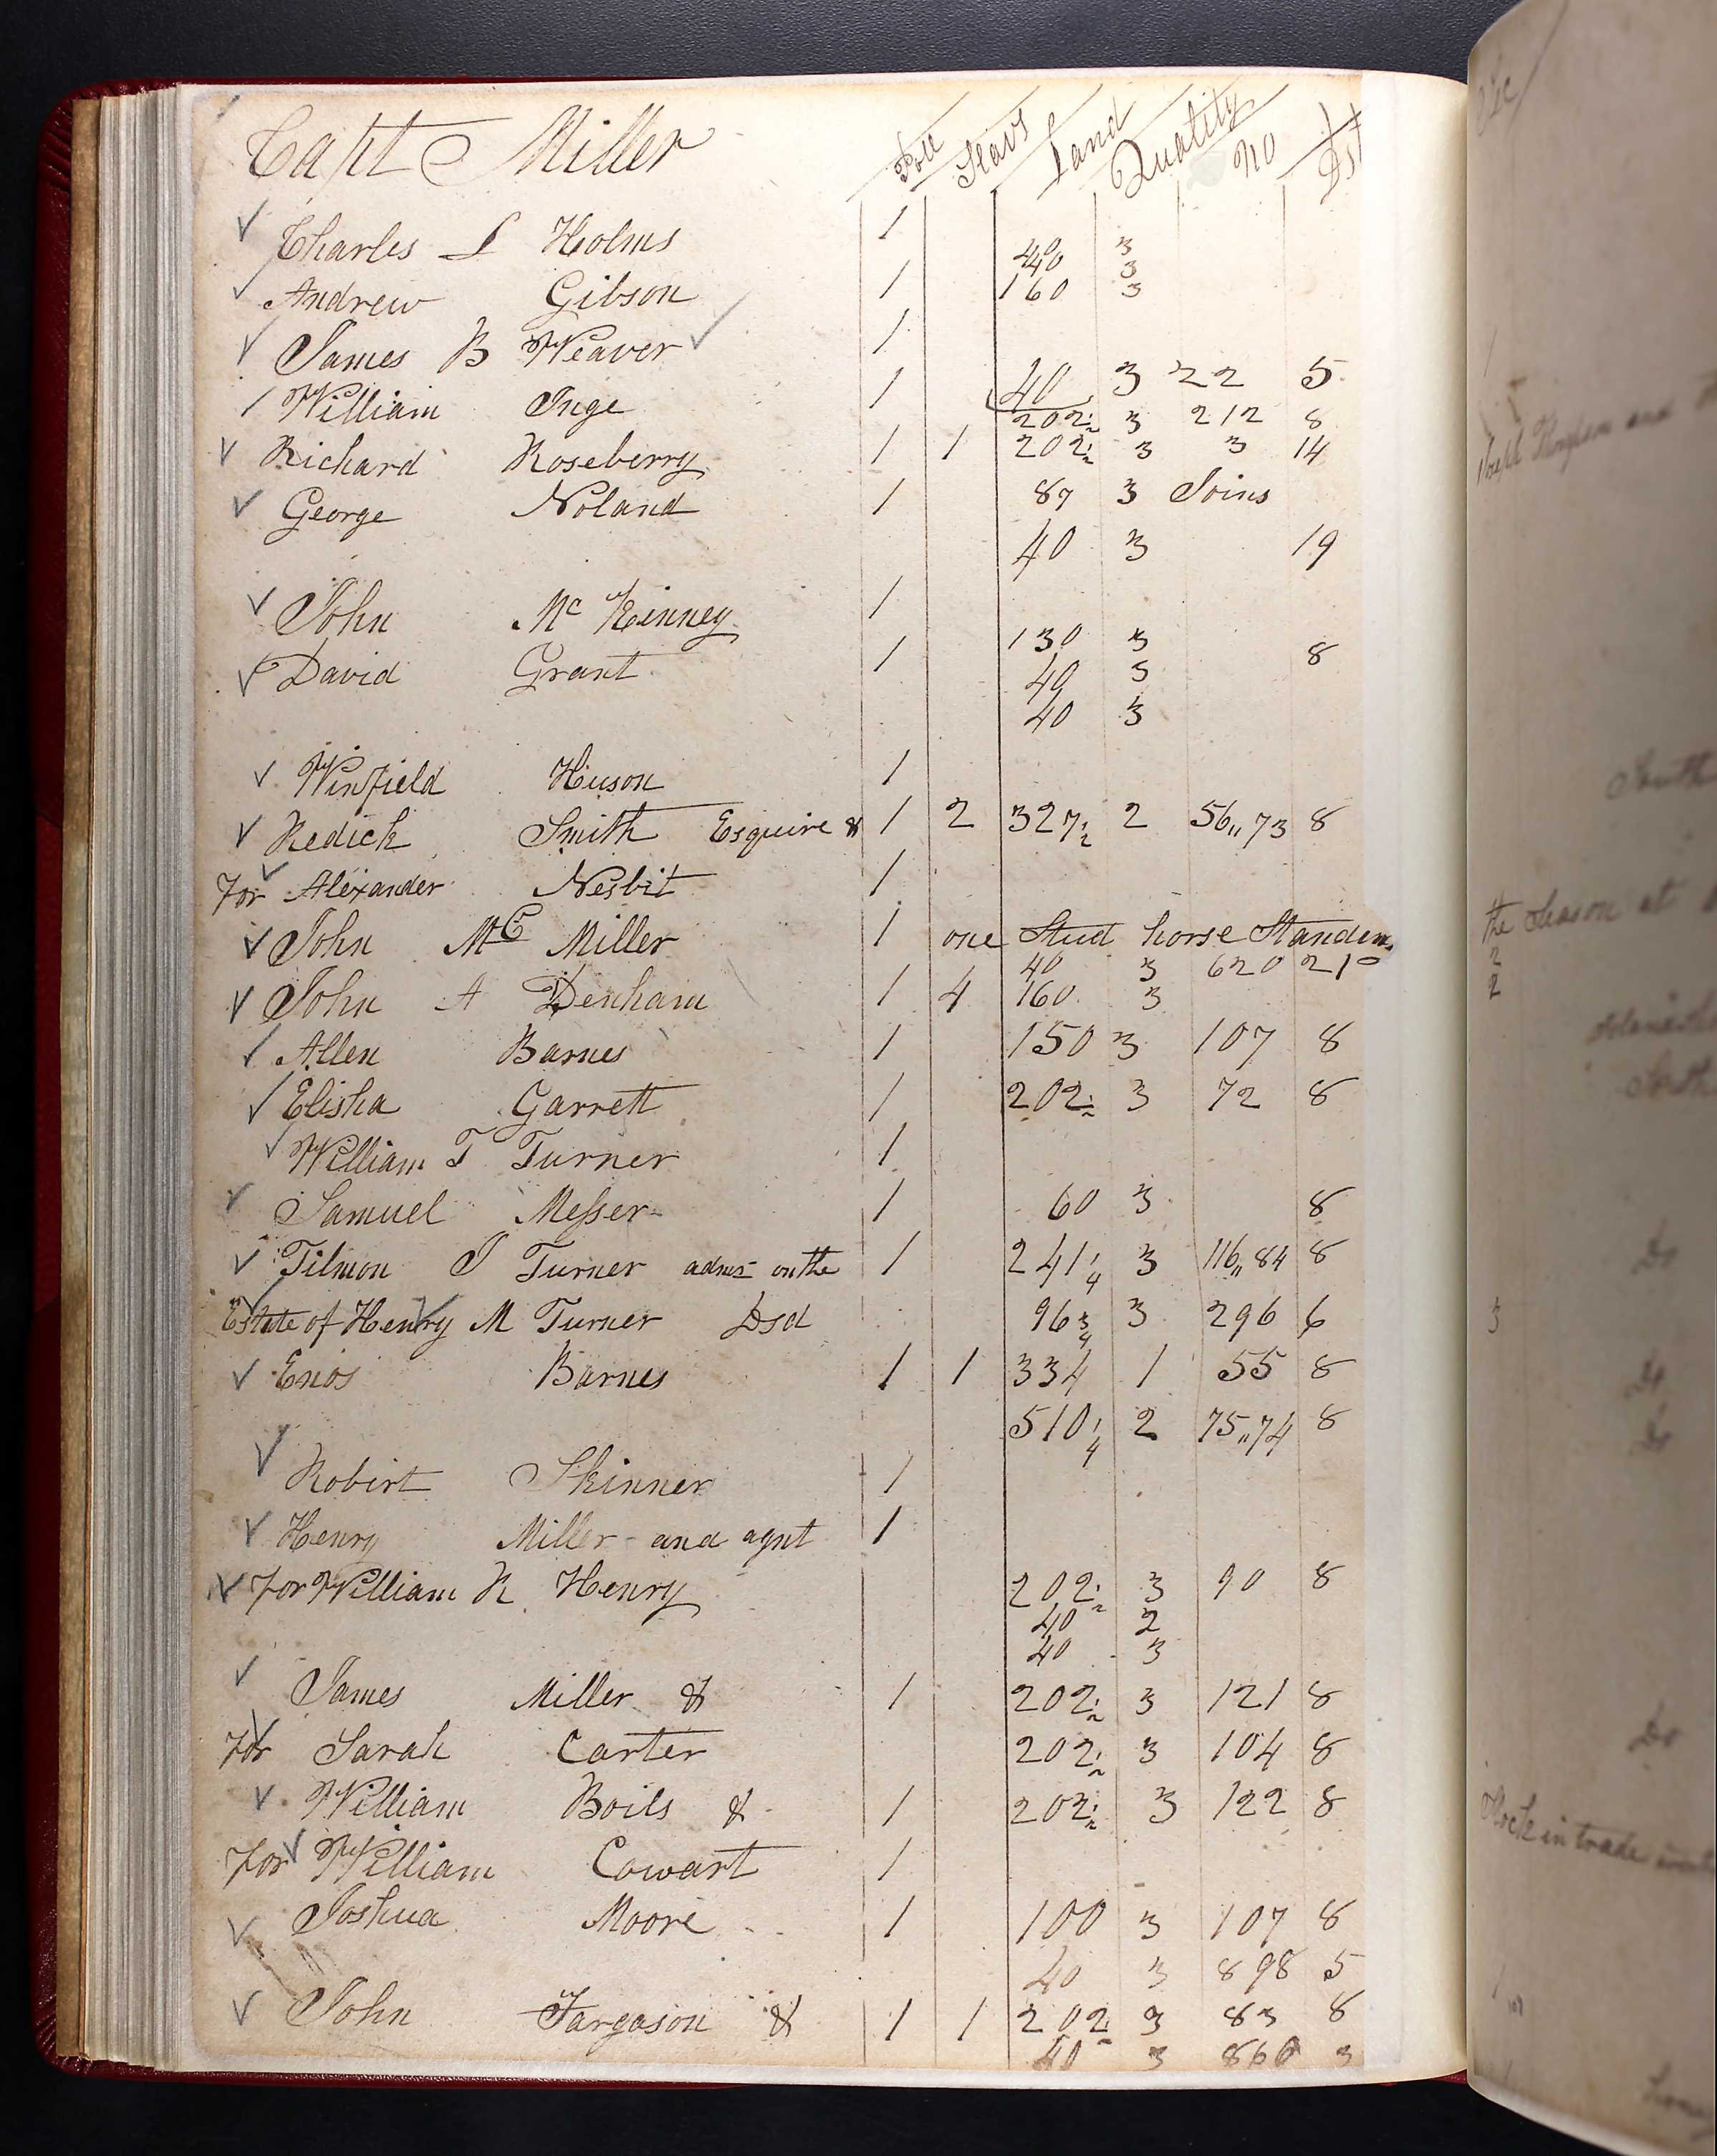 Capt Miller Poll Slavs Land Quality No Dst
Charles L Holms 1
40 3
40 3
Andrew Gibson 1 160 3
James B Weaver 1
40 3 22 5
William Inge 1 202½ 3 212 8
Richard Roseberry 1 1 202½ 3 3 14
George Noland 1 87 3 Joins
40 3 19
John Mc Kinney 1
130 3
David Grant 1 40 3 8
40 3
Winfield Huson 1
Redick Smith Esquire & 1 2 327½ 2 56,,73 8
For Alexander Nesbit 1
John McC Miller 1 one Stud horse Standin
40 3 620 21
John A Denham 1 4 160 3
Allen Barnes 1 150 3 107 8
Elisha Garrett 1 202½ 3 72 8
William T Turner 1
Samuel Messer 1 60 3 8
Tilmon J Turner adms on the 1 241¼ 3 116,,84 8
Estate of Henry M Turner Dsd 96¾ 3 296 6
Enos Barnes 1 1 334 1 55 8
510¼ 2 75,,74 8
Robirt Skinner 1
Henry Miller and agnt 1
For William R Henry 202½ 3 90 8
40 2
40 3
James Miller & 1 202½ 3 121 8
For Sarah Carter 202½ 3 104 8
William Boils & 1 202½ 3 122 8
For William Cowart 1
Joshua Moore 1 100 3 107 8
40 3 898 5
John Fargason & 1 1 202½ 3 83 8
40 3 860 3
the Season at
2
2
Do
3
Do
Do
Do
Stock in trade